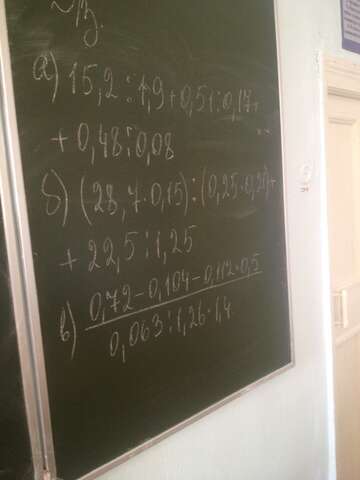 №3.
а) 15,2:1,9+0,51:0,17+
+0,48:0,08
б) (28,7·0,15):(0,25·0,21)+
+22,5:1,25
в) 0,72-0,104-0,112·0,5
0,063:1,26·1,4